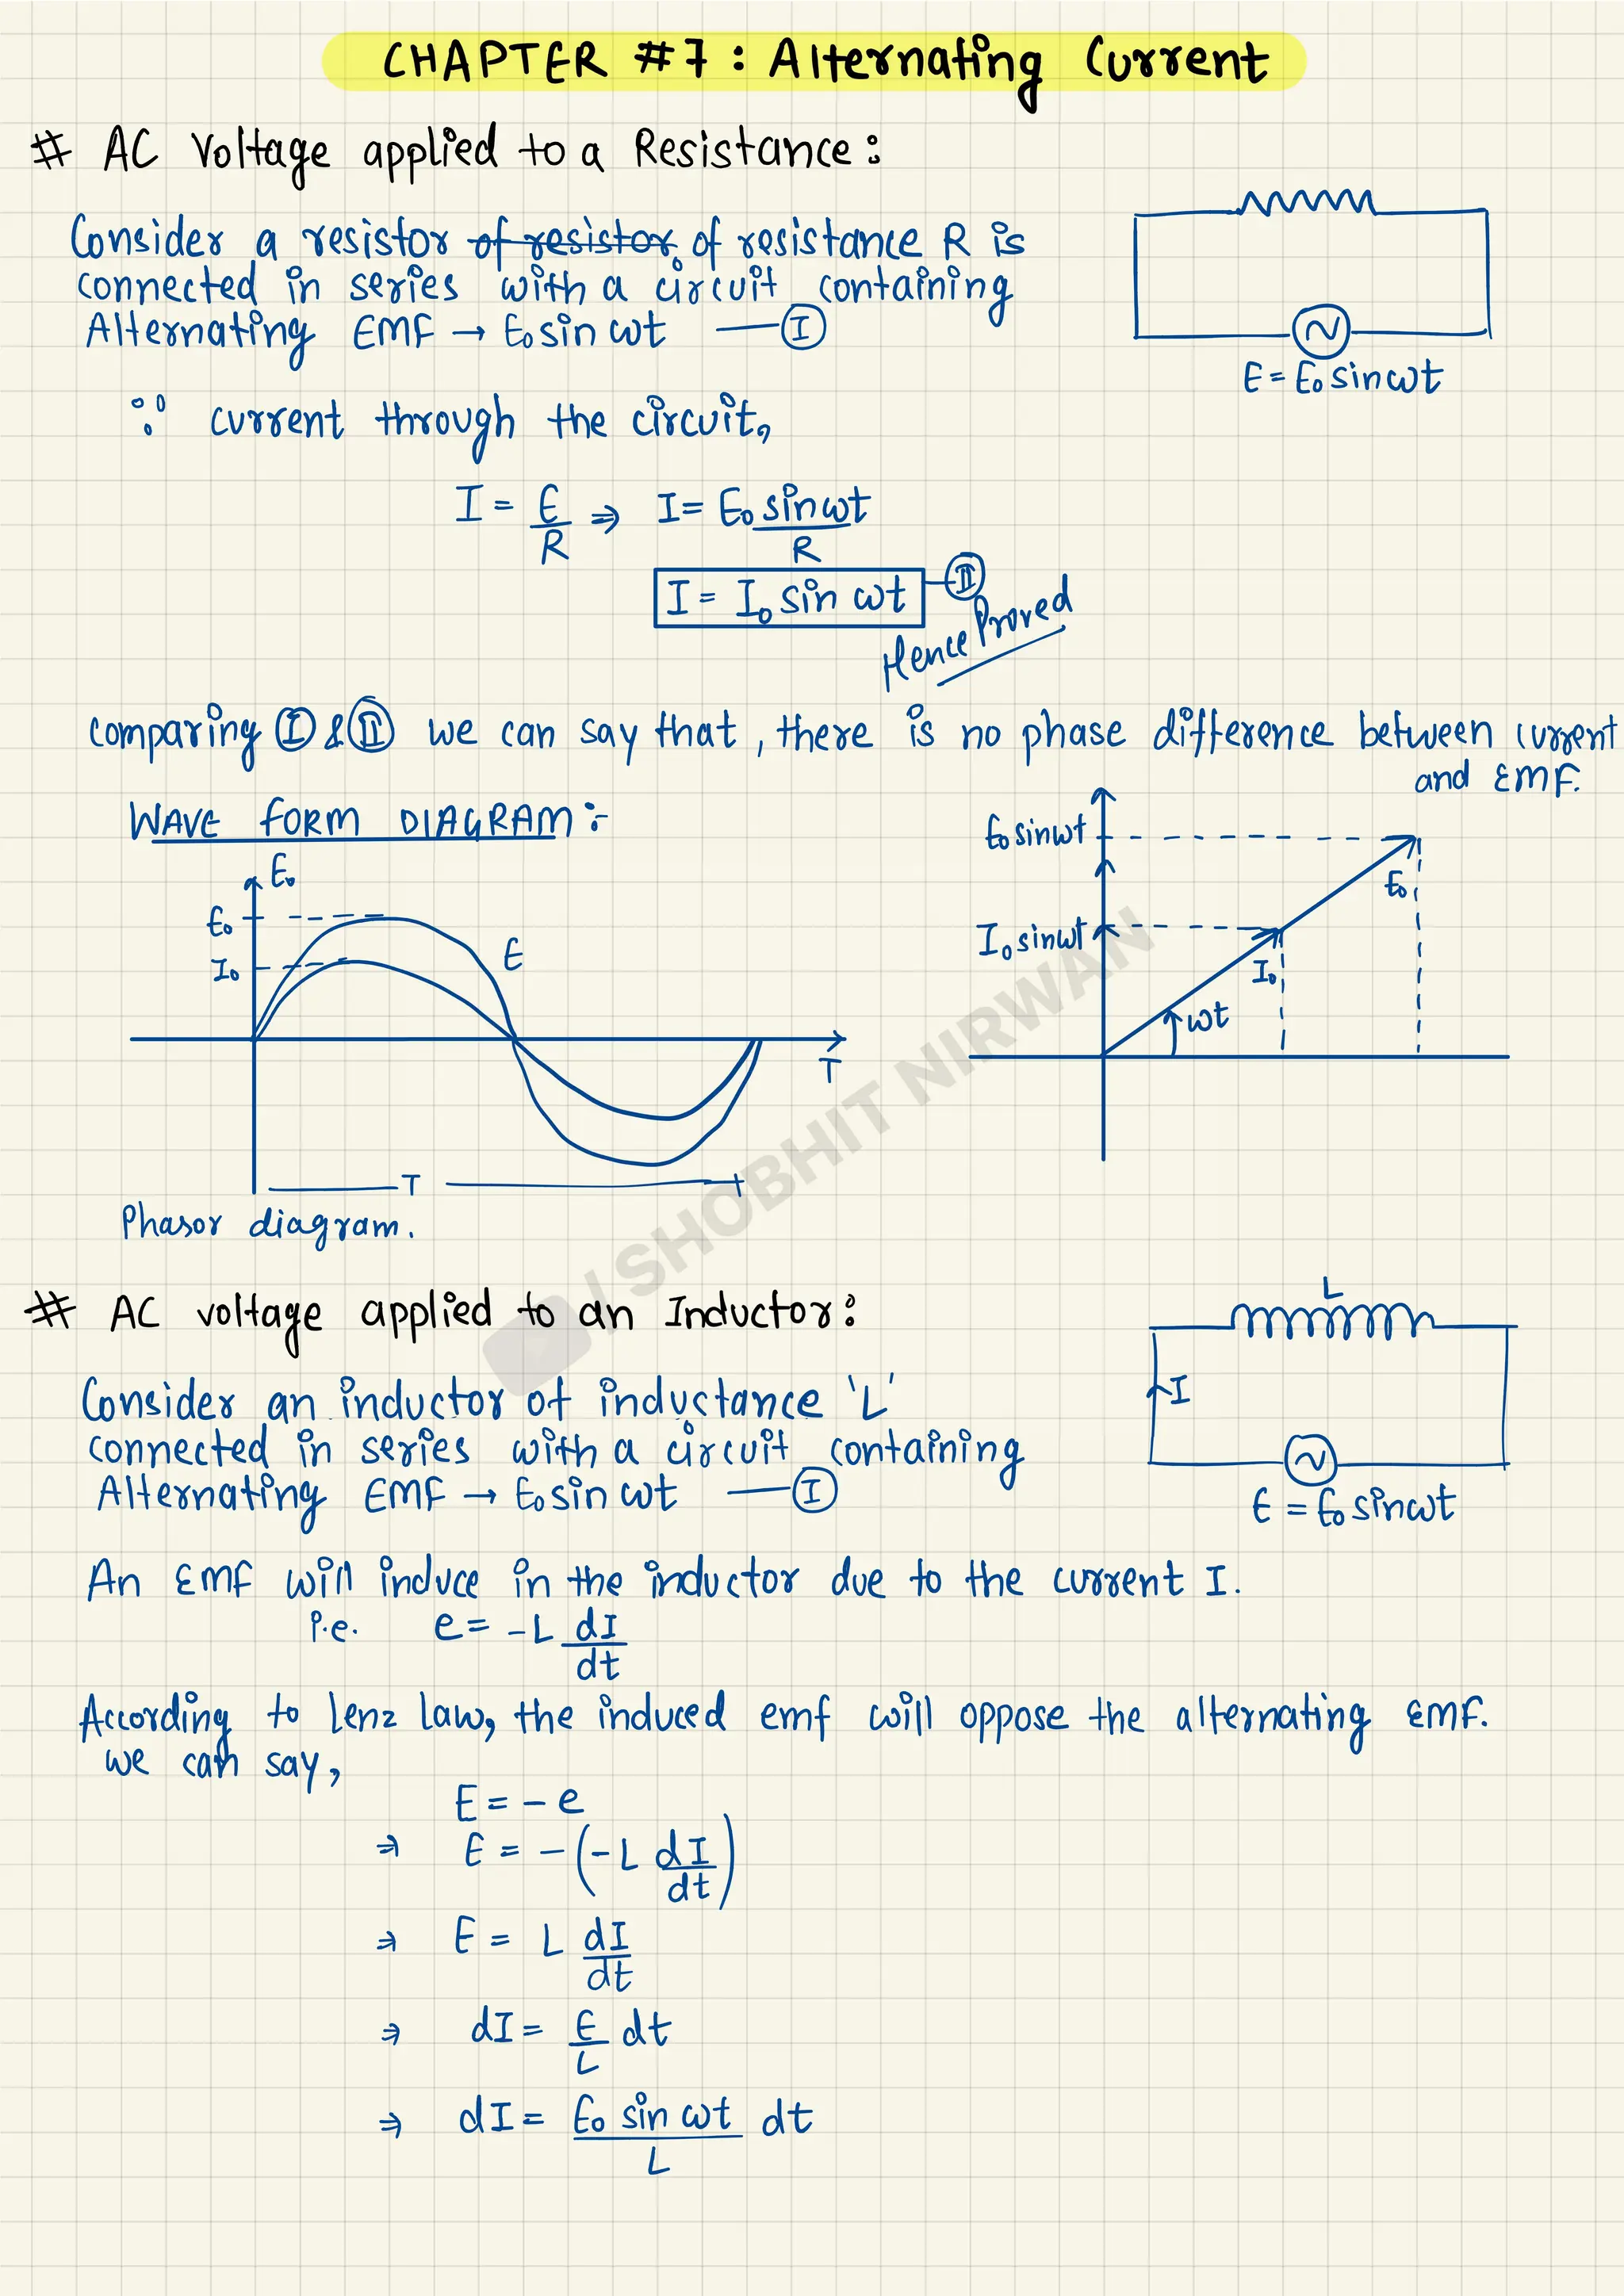 CHAPTER #7 : Alternating Current
# AC Voltage applied to a Resistance:
Consider a resistor of resistor of resistance R is
connected in series with a circuit containing
Alternating EMF → E₀ sin ωt — Ⓘ
E = E₀ sin ωt
∵ current through the circuit,
I = E/R ⇒ I = E₀ sin ωt/R
I = I₀ sin ωt — II
Hence Proved
comparing Ⓘ & II we can say that, there is no phase difference between current
and EMF.
WAVE FORM DIAGRAM:-
E₀
E₀
I₀
E
T
T
E₀ sin ωt
E₀
I₀ sin ωt
I₀
ωt
Phasor diagram.
/ SHOBHIT NIRWAN
# AC voltage applied to an Inductor:
L
I
E = E₀ sin ωt
Consider an inductor of inductance 'L'
connected in series with a circuit containing
Alternating EMF → E₀ sin ωt — Ⓘ
An EMF will induce in the inductor due to the current I.
i.e. e = -L dI/dt
According to Lenz law, the induced emf will oppose the alternating EMF.
we can say,
E = - e
⇒ E = -(-L dI/dt)
⇒ E = L dI/dt
⇒ dI = E/L dt
⇒ dI = E₀ sin ωt/L dt